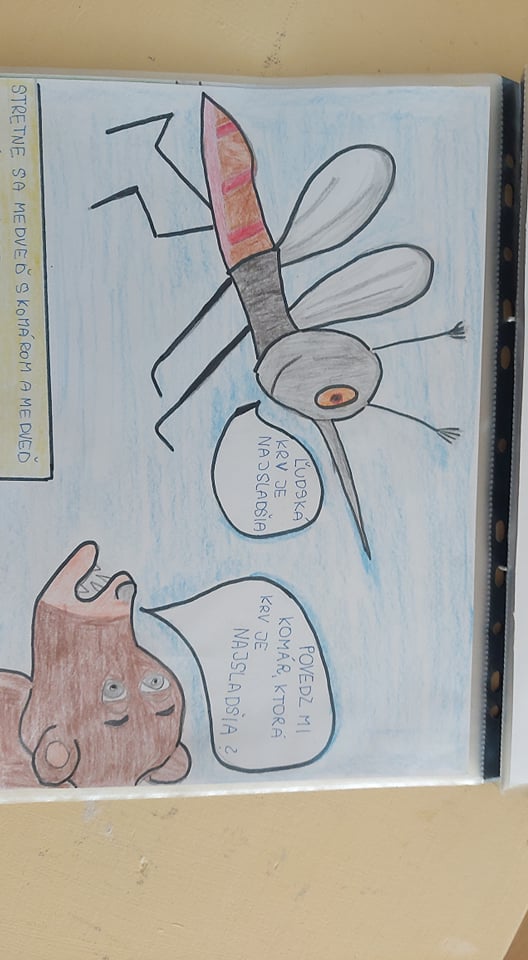 POVEDZ MI
KOMÁR, KTORÁ
KRV JE
NAJSLADŠIA?
ĽUDSKÁ
KRV JE
NAJSLADŠIA
STRETNE SA MEDVEĎ S KOMÁROM A MEDVEĎ